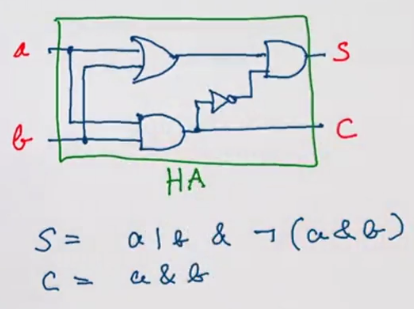 a
S
b
C
HA
S = a | b & ¬ (a & b)
C = a & b